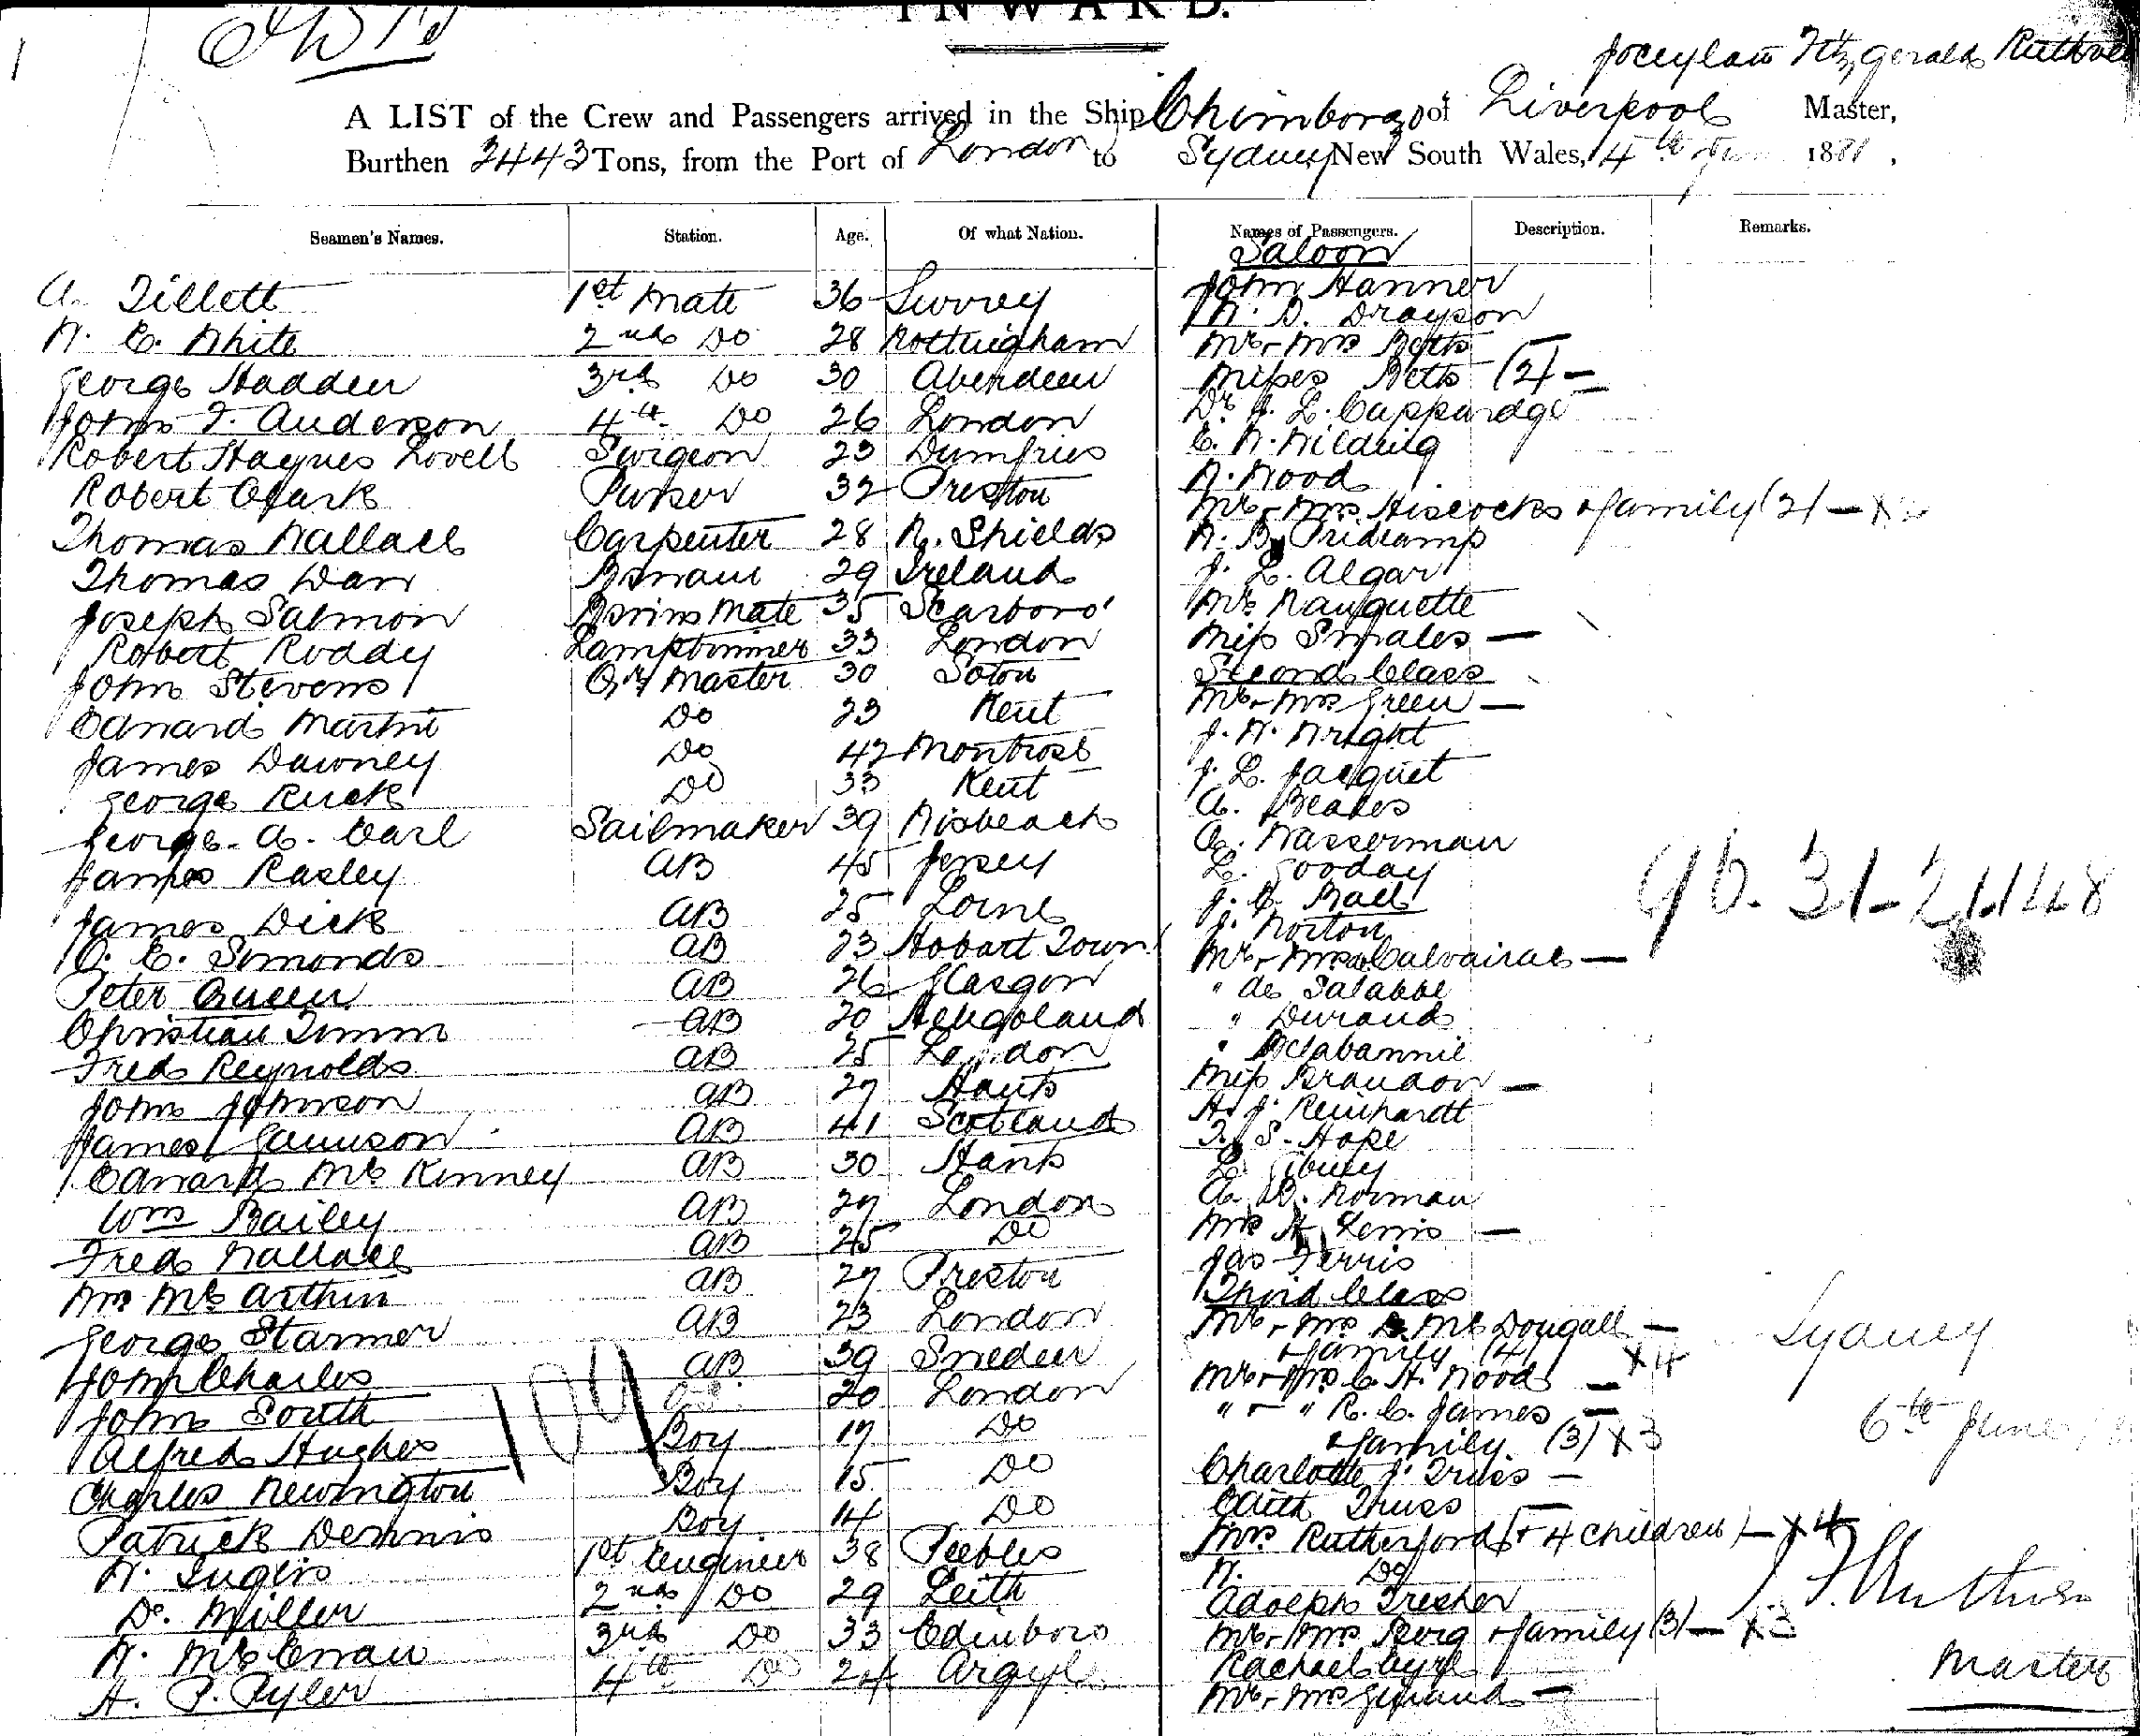 INWARD.
Fitzgerald Ruthven
A LIST of the Crew and Passengers arrived in the Ship Chimborazo of Liverpool Master,
Burthen 2443 Tons, from the Port of London to Sydney New South Wales, 4th June 1881.
Seamen's Names. Station. Age. Of what Nation. Names of Passengers. Description. Remarks.
Saloon
A. Tillett 1st Mate 36 Surrey John Hanner
W. E. White 2nd Do 28 Nottingham W. D. Drayson
George Hadden 3rd Do 30 Aberdeen Mr & Mrs Betts
John F. Anderson 4th Do 26 London Misses Betts (2) —
Robert Haynes Lovell Surgeon 23 Dumfries Dr J. L. Cuppaidge
Robert Clark Purser 32 Preston E. W. Wilding
Thomas Wallace Carpenter 28 N. Shields W. Wood
Thomas Darr Bsmain 29 Ireland Mr & Mrs Hiscocks & family (2) — X 2
Joseph Salmon Bsmins Mate 35 Scarboro' W. B. Pridcamp
Robert Roddy Lamptrimmer 33 London J. L. Algar
John Stevens Qr Master 30 Soton Mr Nanquette
Edward Martin Do 23 Kent Miss Smales —
James Dawney Do 42 Montrose Second Class
George Ruck Do 33 Kent Mr & Mrs Green —
George A. Carl Sailmaker 39 Wisbeach J. W. Wright
James Rasley AB 45 Jersey J. L. Jacquet
James Dick AB 25 Lorne A. Beales
O. E. Simonds AB 23 Hobart Town A. Wasserman
Peter Queen AB 26 Glasgow L. Gooday
Christian Timm AB 20 Heligoland J. C. Ball
Freds Reynolds AB 25 London J. Norton
John Johnson AB 27 Hants Mr & Mrs Calvairac —
James Jamieson AB 41 Scotland " de Salabbe
Edward McKinney AB 30 Hants " Durand
Wm Bailey AB 27 London " Delabannie
Fred Wallace AB 25 Do Miss Brandon —
Wm McArthur AB 27 Preston H. J. Reinhardt
George Starmer AB 23 London T. S. Hope
John Charles AB 39 Sweden L. Gibney
John South 20 London A. D. Norman
Alfred Hughes Boy 17 Do Mrs H. Lewis —
Charles Newington Boy 15 Do Jas Ferris
Patrick Dennis Boy 14 Do Third Class
W. Inglis 1st Engineer 38 Peebles Mr & Mrs D. McDougall —
D. Miller 2nd Do 29 Leith & family (4) X 4
W. McEwan 3rd Do 33 Edinboro Mr & Mrs C. H. Wood —
H. P. Pyler 4th Do 24 Argyle " & " R. C. James —
& family (3) X 3
Charlotte J. Truss —
Edith Truss —
Mrs Rutherford (& 4 children) — X 4
W. Do
Adolph Trescher
Mr & Mrs Berg & family (3) — X 3
Rachael Cyre —
Mr & Mrs Giraud —
104
96. 31-21.148
Sydney
6th June
J. F. Ruthven
Master